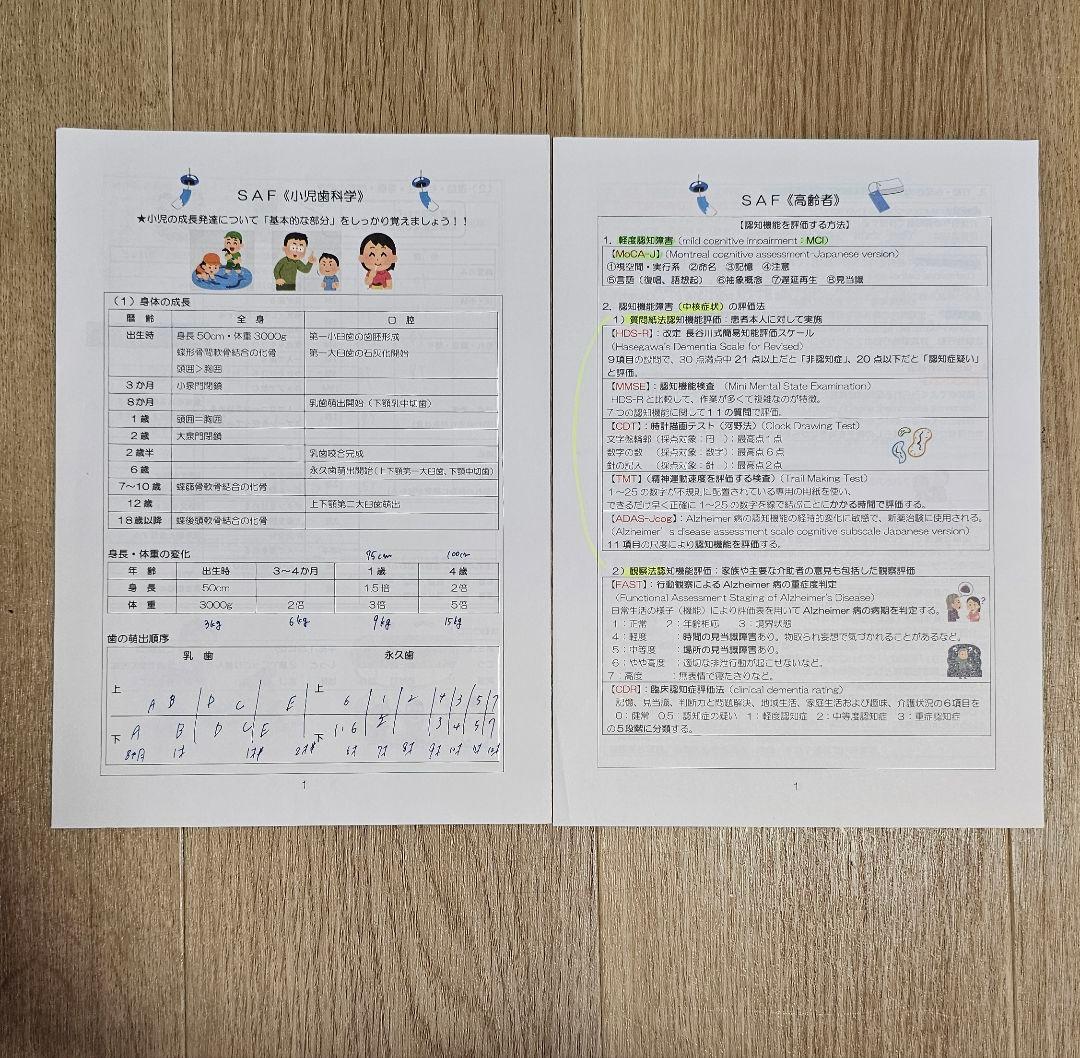 SAF《小児歯科学》
★小児の成長発達について「基本的な部分」をしっかり覚えましょう！！
（1）身体の成長
暦 齢 全 身 口 腔
出生時 身長50cm・体重3000g 第一小臼歯の歯胚形成
蝶形骨間軟骨結合の化骨 第一大臼歯の石灰化開始
頭囲＞胸囲
3か月 小泉門閉鎖
8か月 乳歯萌出開始（下顎乳中切歯）
1歳 頭囲＝胸囲
2歳 大泉門閉鎖
2歳半 乳歯咬合完成
6歳 永久歯萌出開始（上下顎第一大臼歯、下顎中切歯）
7～10歳 蝶篩骨軟骨結合の化骨
12歳 上下顎第二大臼歯萌出
18歳以降 蝶後頭軟骨結合の化骨
身長・体重の変化 75cm 100cm
年 齢 出生時 3～4か月 1歳 4歳
身 長 50cm 1.5倍 2倍
体 重 3000g 2倍 3倍 5倍
3kg 6kg 9kg 15kg
歯の萌出順序
乳 歯 永久歯
上 A B D C E 上 6 1 2 4 3 5 7
下 A B D C E 下 1 6 2 3 4 5 7
1
SAF《高齢者》
【認知機能を評価する方法】
1．軽度認知障害（mild cognitive impairment：MCI）
【MoCA-J】（Montreal cognitive assessment-Japanese version）
①視空間・実行系 ②命名 ③記憶 ④注意
⑤言語（復唱、語想起） ⑥抽象概念 ⑦遅延再生 ⑧見当識
2．認知機能障害（中核症状）の評価法
1）質問紙法認知機能評価：患者本人に対して実施
【HDS-R】：改定 長谷川式簡易知能評価スケール
（Hasegawa's Dementia Scale for Revised）
9項目の設問で、30点満点中21点以上だと「非認知症」、20点以下だと「認知症疑い」
と評価。
【MMSE】：認知機能検査 （Mini Mental State Examination）
HDS-Rと比較して、作業が多くて複雑なのが特徴。
7つの認知機能に関して11の質問で評価。
【CDT】：時計描画テスト（河野法）（Clock Drawing Test）
文字盤輪郭（採点対象：円 ）：最高点1点
数字の数 （採点対象：数字）：最高点6点
針の記入 （採点対象：針 ）：最高点2点
【TMT】（精神運動速度を評価する検査）（Trail Making Test）
1～25の数字が不規則に配置されている専用の用紙を使い、
できるだけ早く正確に1～25の数字を線で結ぶことにかかる時間で評価する。
【ADAS-Jcog】：Alzheimer病の認知機能の経時的変化に敏感で、新薬治験に使用される。
（Alzheimer's disease assessment scale cognitive subscale Japanese version）
11項目の尺度により認知機能を評価する。
2）観察法認知機能評価：家族や主要な介助者の意見も包括した観察評価
【FAST】：行動観察によるAlzheimer病の重症度判定
（Functional Assessment Staging of Alzheimer's Disease）
日常生活の様子（機能）により評価表を用いてAlzheimer病の病期を判定する。
1：正常 2：年齢相応 3：境界状態
4：軽度 ：時間の見当識障害あり。物取られ妄想で気づかれることがあるなど。
5：中等度 ：場所の見当識障害あり。
6：やや高度 ：適切な排泄行動が起こせないなど。
7：高度 ：無表情で寝たきりなど。
【CDR】：臨床認知症評価法（clinical dementia rating）
記憶、見当識、判断力と問題解決、地域生活、家庭生活および趣味、介護状況の6項目を
0：健常 0.5 認知症の疑い 1：軽度認知症 2：中等度認知症 3：重症認知症
の5段階に分類する。
1